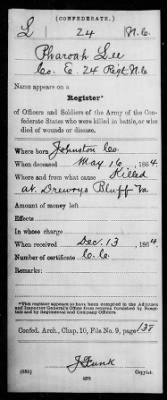 (CONFEDERATE.)
L 24 N.C.
Pharoah Lee
Co. E. 24 Regt N.C.
Name appears on a
Register*
of Officers and Soldiers of the Army of the Confederate States who were killed in battle, or who
died of wounds or disease.
Where born Johnston Co.
When deceased May 16, 1864
Where and from what cause Killed
at Drewrys Bluff Va
Amount of money left
Effects
In whose charge
When received Dec. 13, 1864.
Number of certificate
Remarks:
*This register appears to have been compiled in the Adjutant
and Inspector General's Office from returns furnished by
and by Regimental and Company Officers
Confed. Arch., Chap. 10, File No. 9, page 138
J Funk
Copyist.